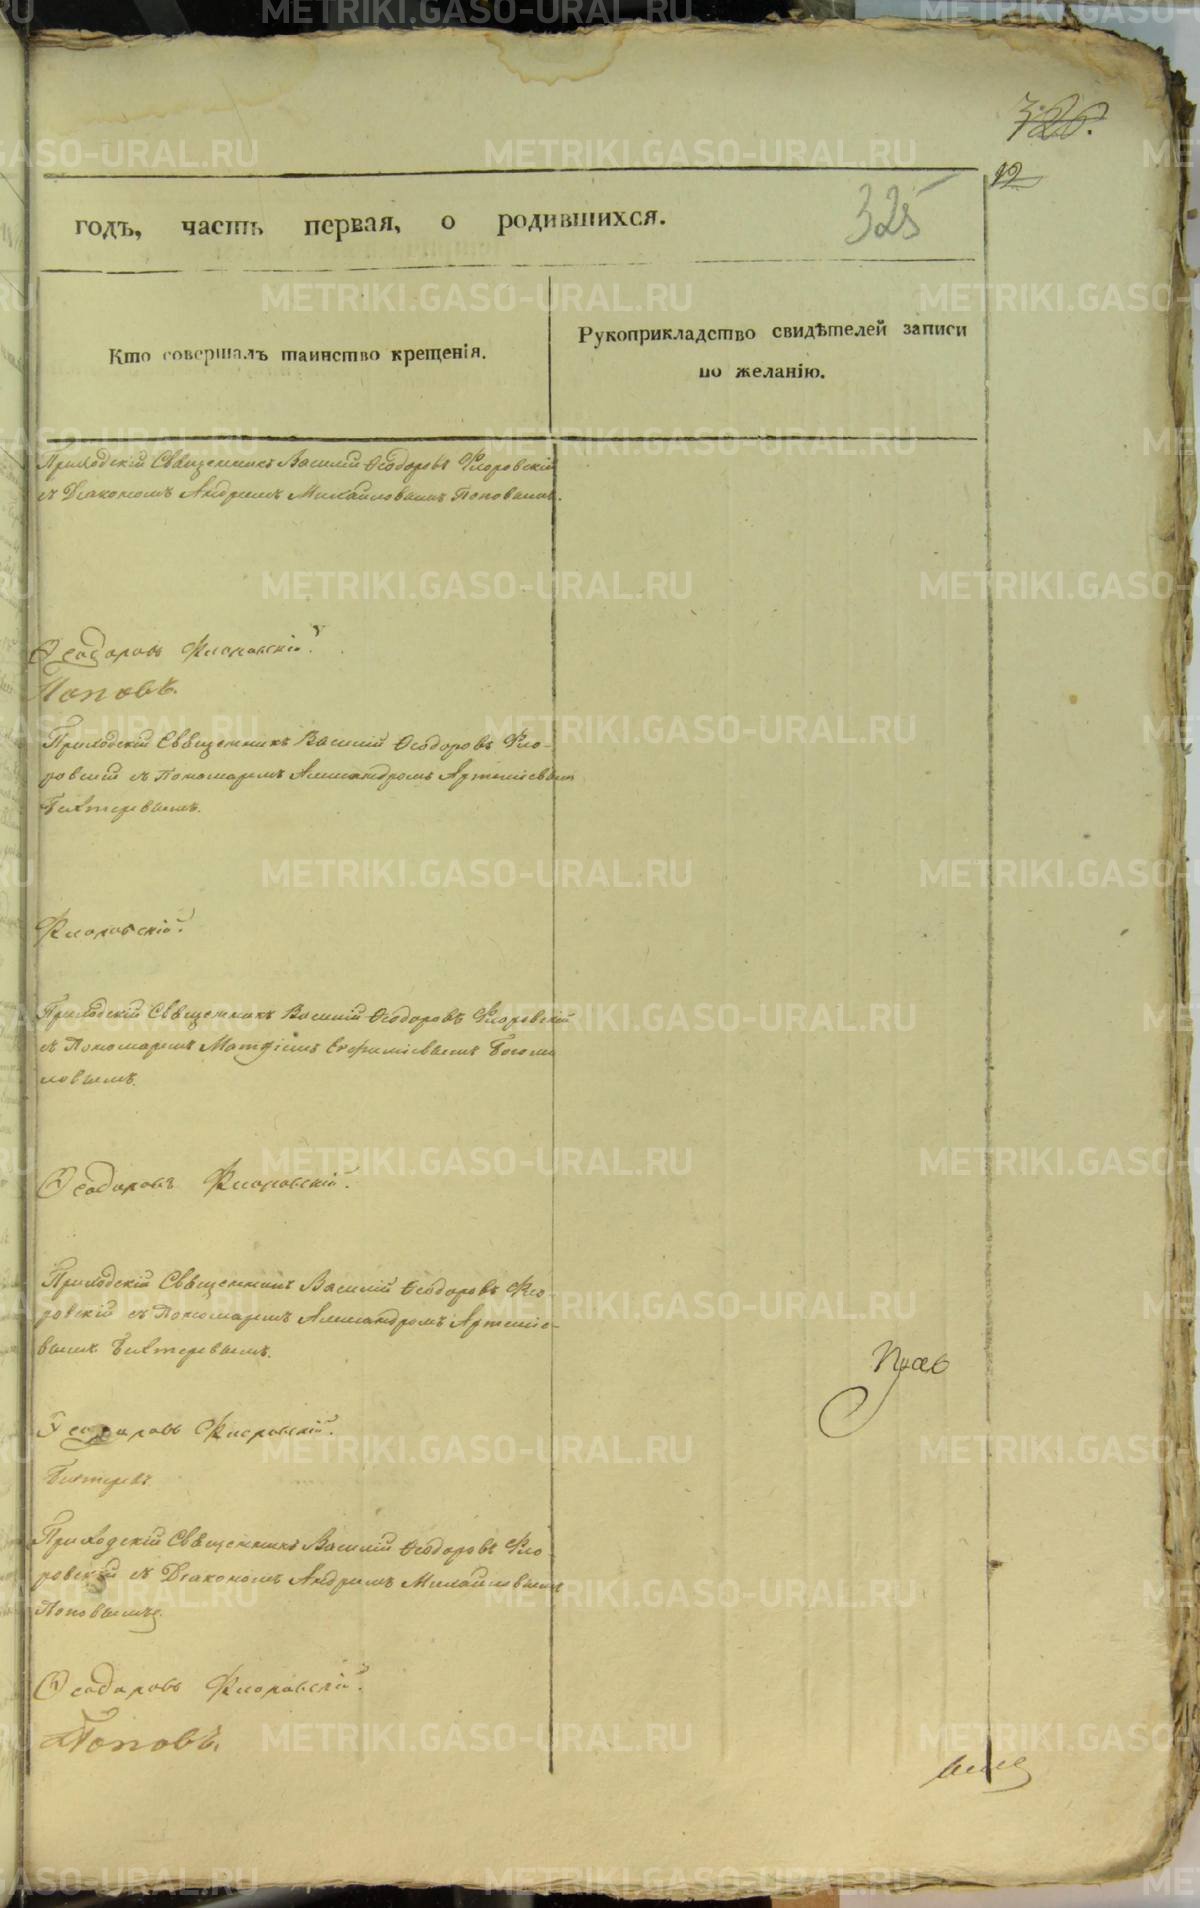 326.
12
325
годъ, часть первая, о родившихся.
Кто совершалъ таинство крещенія.
Рукоприкладство свидѣтелей записи
по желанію.
Приходскій Священникъ Василій Ѳеодоровъ Флоровскій
съ Діакономъ Андреемъ Михайловымъ Поповымъ.
Ѳеодоровъ Флоровскій.
Поповъ.
Приходскій Священникъ Василій Ѳеодоровъ Фло-
ровскій съ Пономаремъ Александромъ Артеміевымъ
Бехтеревымъ.
Флоровскій.
Приходскій Священникъ Василій Ѳеодоровъ Флоровскій
съ Пономаремъ Матфіемъ Евфиміевымъ
ловымъ.
Ѳеодоровъ Флоровскій.
Приходскій Священникъ Василій Ѳеодоровъ Фло-
ровскій съ Пономаремъ Александромъ Артеміе-
вымъ Бехтеревымъ.
Ѳеодоровъ Флоровскій.
Бехтеревъ.
Приходскій Священникъ Василій Ѳеодоровъ Фло-
ровскій съ Діакономъ Андреемъ Михайловымъ
Поповымъ.
Ѳеодоровъ Флоровскій.
Поповъ.
METRIKI.GASO-URAL.RU